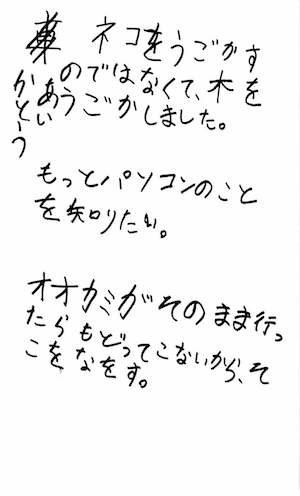 ネコをうごかす
のではなくて、木を
うごかしました。
もっとパソコンのこと
を知りたい。
オオカミがそのまま行っ
たらもどってこないから、そ
こをなをす。